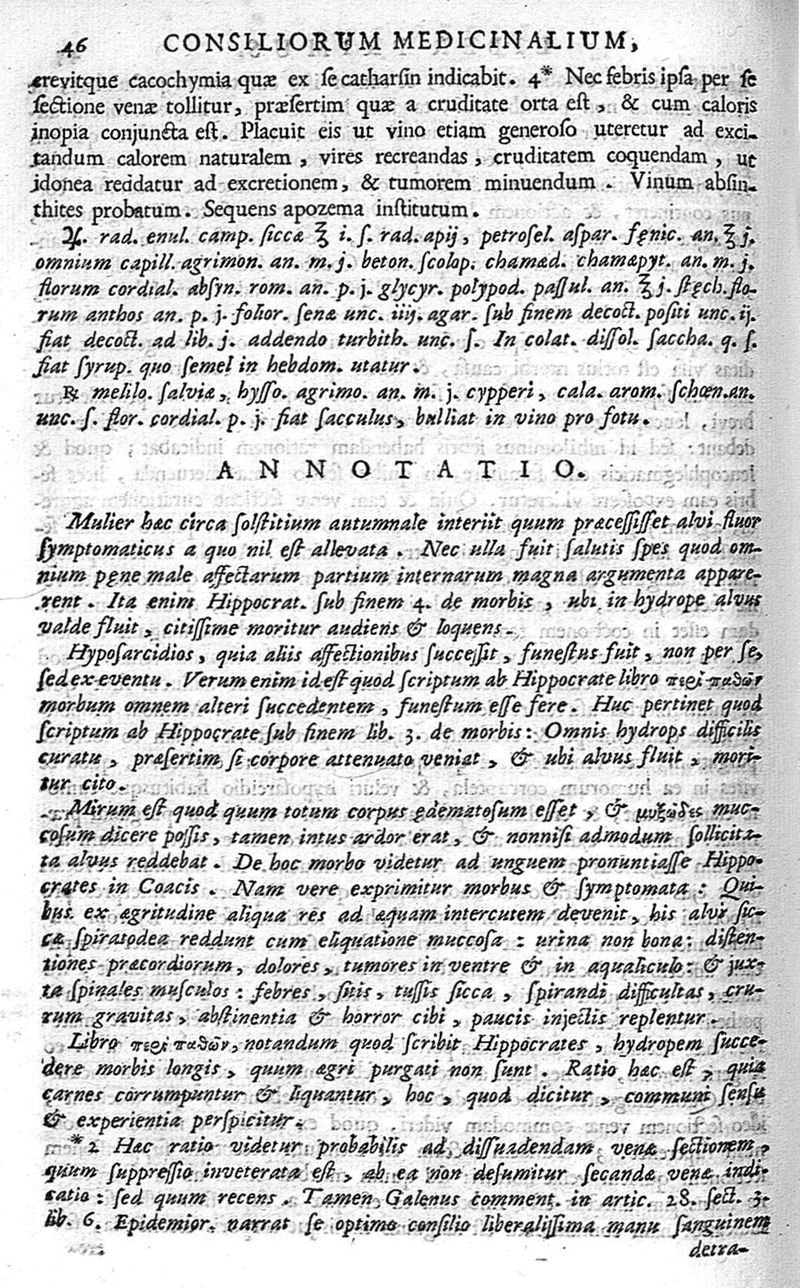 46 CONSILIORUM MEDICINALIUM,
crevitque cacochymia quæ ex ſe catharſin indicabit. 4* Nec febris ipſa per ſe
ſectione venæ tollitur, præſertim quæ a cruditate orta eſt, & cum caloris
inopia conjuncta eſt. Placuit eis ut vino etiam generoſo uteretur ad exci-
tandum calorem naturalem, vires recreandas, cruditatem coquendam, ut
idonea reddatur ad excretionem, & tumorem minuendum. Vinum abſin-
thites probatum. Sequens apozema inſtitutum.
℞. rad. enul. camp. ſiccæ ℥ i. ſ. rad. apij, petroſel. aſpar. fęnic. an. ℥ j.
omnium capill. agrimon. an. m. j. beton. ſcolop. chamæd. chamæpyt. an. m. j.
florum cordial. abſyn. rom. an. p. j. glycyr. polypod. paſſul. an. ℥ j. ſtęch. flo-
rum anthos an. p. j. folior. ſenæ unc. iiij. agar. ſub finem decoct. poſiti unc. ij.
fiat decoct. ad lib. j. addendo turbith. unc. ſ. In colat. diſſol. ſaccha. q. ſ.
fiat ſyrup. quo ſemel in hebdom. utatur.
℞ melilo. ſalviæ, hyſſo. agrimo. an. m. j. cypperi, cala. arom. ſchœn. an.
unc. ſ. flor. cordial. p. j. fiat ſacculus, bulliat in vino pro fotu.
ANNOTATIO.
Mulier hæc circa ſolſtitium autumnale interiit quum præceſſiſſet alvi fluor
ſymptomaticus a quo nil eſt allevata. Nec ulla fuit ſalutis ſpes quod om-
nium pęne male affectarum partium internarum magna argumenta appare-
rent. Ita enim Hippocrat. ſub finem 4. de morbis, ubi in hydrope alvus
valde fluit, citiſſime moritur audiens & loquens.
Hypoſarcidios, quia aliis affectionibus ſucceſſit, funeſtus fuit, non per ſe,
ſed ex eventu. Verum enim id eſt quod ſcriptum ab Hippocrate libro περὶ παθῶν
morbum omnem alteri ſuccedentem, funeſtum eſſe fere. Huc pertinet quod
ſcriptum ab Hippocrate ſub finem lib. 3. de morbis: Omnis hydrops difficilis
curatu, præſertim ſi corpore attenuato veniat, & ubi alvus fluit, mori-
tur cito.
Mirum eſt quod quum totum corpus ędematoſum eſſet, & μυξῶδες muc-
coſum dicere poſſis, tamen intus ardor erat, & nonniſi admodum ſollicita-
ta alvus reddebat. De hoc morbo videtur ad unguem pronuntiaſſe Hippo-
crates in Coacis. Nam vere exprimitur morbus & ſymptomata: Qui-
bus ex ægritudine aliqua res ad aquam intercutem devenit, his alvi ſic-
cæ ſpiratodea reddunt cum eliquatione muccoſa: urina non bona: diſten-
tiones præcordiorum, dolores, tumores in ventre & in aqualiculo: & jux-
ta ſpinales muſculos: febres, ſitis, tuſſis ſicca, ſpirandi difficultas, cru-
rum gravitas, abſtinentia & horror cibi, paucis injectis replentur.
Libro περὶ παθῶν, notandum quod ſcribit Hippocrates, hydropem ſucce-
dere morbis longis, quum ægri purgati non ſunt. Ratio hæc eſt, quia
carnes corrumpuntur & liquantur, hoc, quod dicitur, communi ſenſu
& experientia perſpicitur.
*2 Hæc ratio videtur probabilis ad diſſuadendam venæ ſectionem,
quum ſuppreſſio inveterata eſt, ab ea non deſumitur ſecandæ venæ indi-
catio: ſed quum recens. Tamen Galenus comment. in artic. 28. ſect. 3.
lib. 6. Epidemior. narrat ſe optimo conſilio liberaliſſima manu ſanguinem
detra-